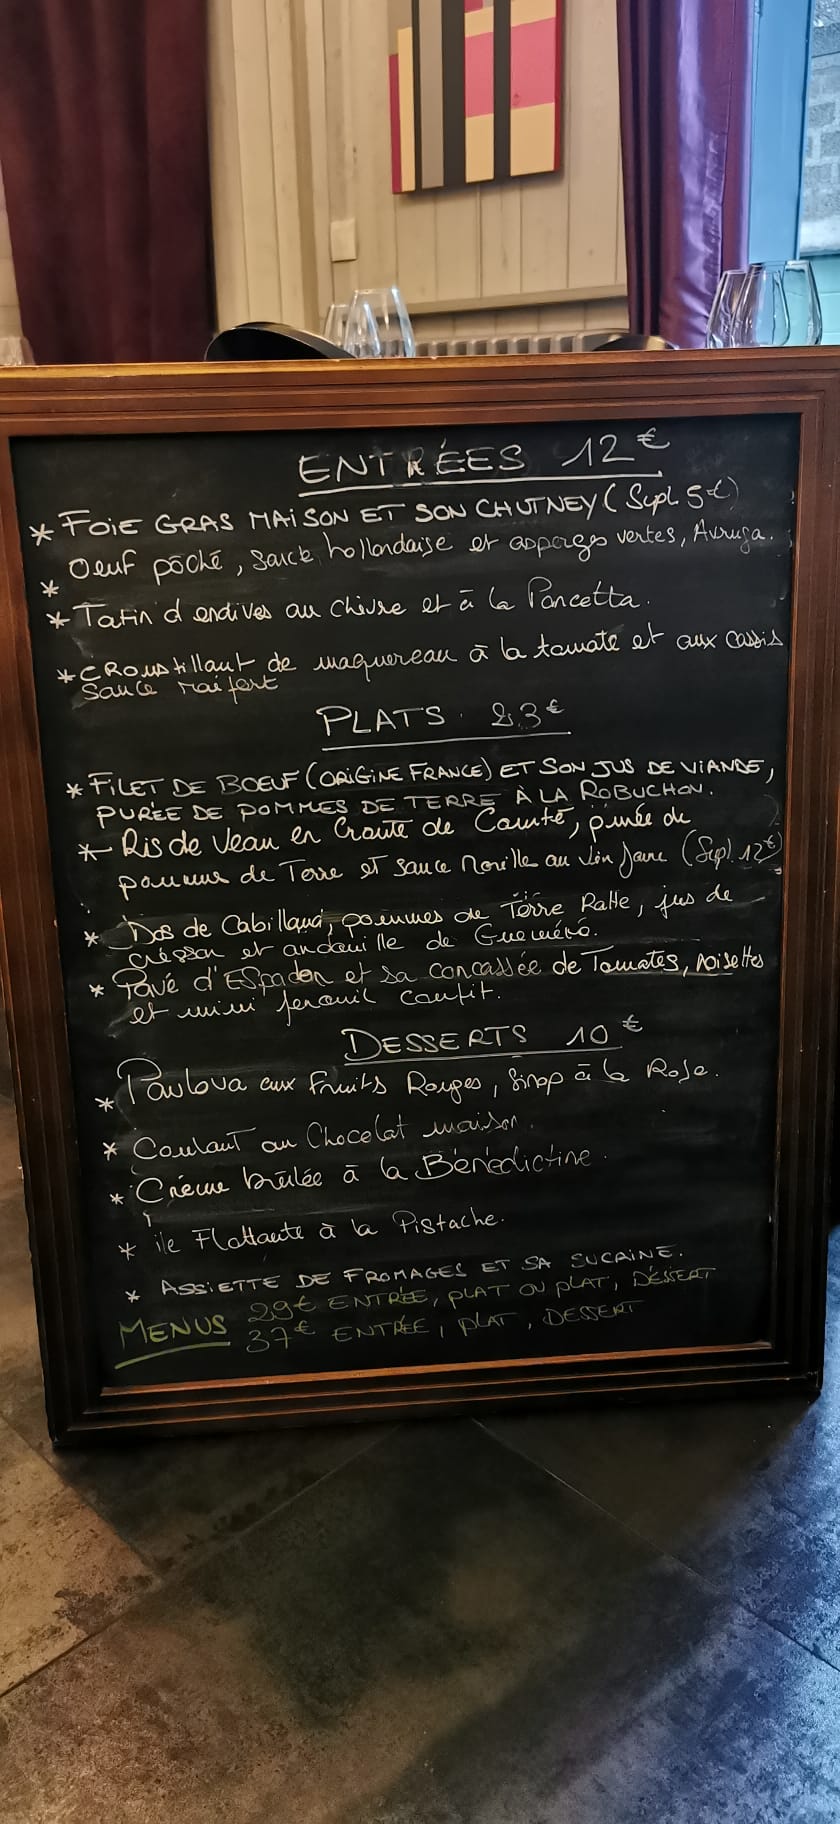 ENTRÉES 12€
* FOIE GRAS MAISON ET SON CHUTNEY (Supl 5€)
* Oeuf poché, sauce hollandaise et asperges vertes, Avruga.
* Tatin d'endives au chèvre et à la Pancetta.
* CROustillant de maquereau à la tomate et aux cassis
Sauce raifort
PLATS. 23€
* FILET DE BOEUF (ORIGINE FRANCE) ET SON JUS DE VIANDE,
PURÉE DE POMMES DE TERRE À LA ROBUCHON.
* Ris de Veau en Croute de Comté, purée de
pommes de Terre et sauce Morille au Vin Jaune (Supl. 12€)
* Dos de Cabillaud, pommes de Terre Ratte, jus de
cresson et andouille de Guémené.
* Pavé d'Espadon et sa concassée de Tomates, noisettes
et mini fenouil confit.
DESSERTS 10€
* Pavlova aux Fruits Rouges, Sirop à la Rose.
* Coulant au Chocolat maison.
* Crème brûlée à la Bénédictine.
* île Flottante à la Pistache.
* ASSIETTE DE FROMAGES ET SA SUCRINE.
MENUS 29€ ENTRÉE, PLAT OU PLAT, DÉSSERT
37€ ENTRÉE, PLAT, DESSERT